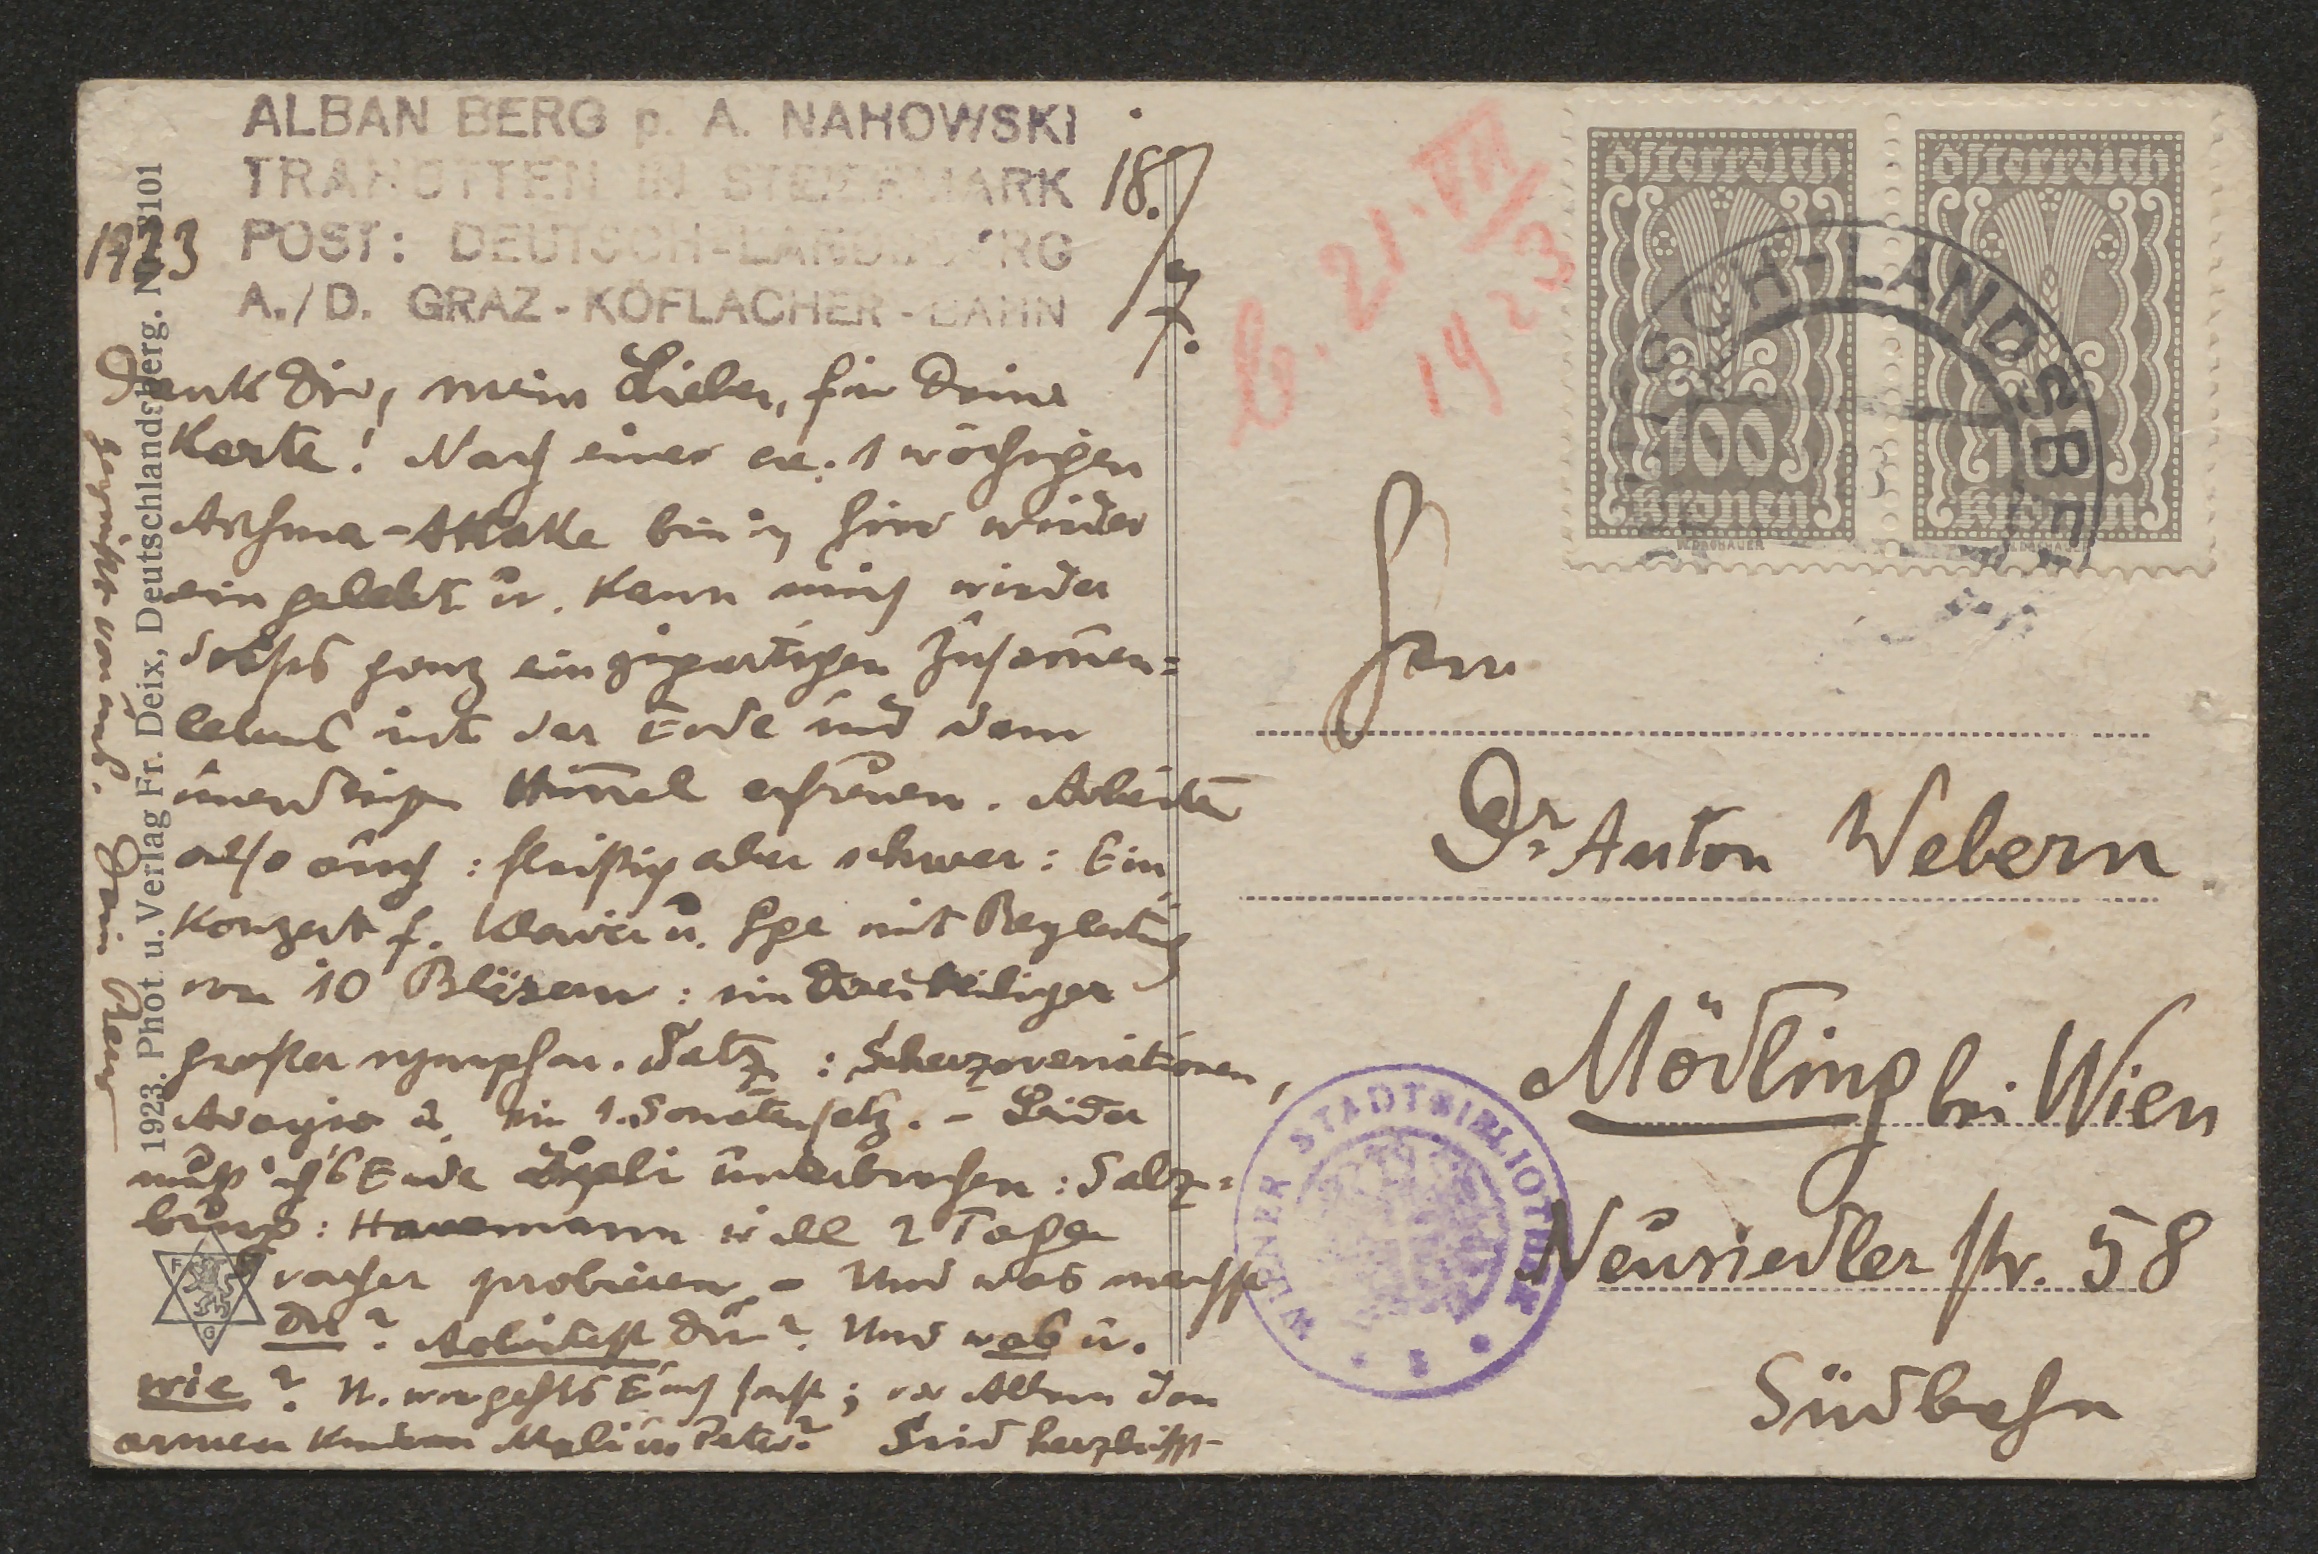 ALBAN BERG p. A. NAHOWSKI
TRAHÜTTEN IN STEIERMARK
POST: DEUTSCH-LANDSBERG
A./D. GRAZ-KÖFLACHER-BAHN
18./7.
1923
Dank Dir, mein Lieber, für Deine
Karte! Nach einer ca. 1 wöchigen
Asthma-Attake bin ich hier wieder
eingelebt u. kann mich wieder
dieses ganz einzigartigen Zusammen=
lebens mit der Erde und dem
unendlichen Himmel erfreuen. Arbeite
also auch: fleißig aber schwer: Ein
Konzert f. Klavier u. Geige mit Begleitung
von 10 Bläsern: ein dreiteiliger
großer symphon. Satz: Scherzovariationen,
Adagio u. ein Sonatensatz. – Leider
muß ich's Ende Juli unterbrechen: Salz=
burg: Havemann will 2 Tage
vorher probieren – Und was machst
Du? Arbeitest Du? Und was u.
wie? U. wie geht's Euch sonst; vor Allem den
armen Kindern Mali u. Peter? Seid herzlichst
gegrüßt von uns. Dein Berg
1923. Phot u. Verlag Fr. Deix, Deutschlandsberg. No 3101
F G
b. 21. VII
1923
österreich
100
kronen
österreich
100
kronen
SCH-LANDSBE
Herrn
Dr. Anton Webern
Mödling bei Wien
Neusiedlerstr. 58
Südbahn
WIENER STADTBIBLIOTHEK